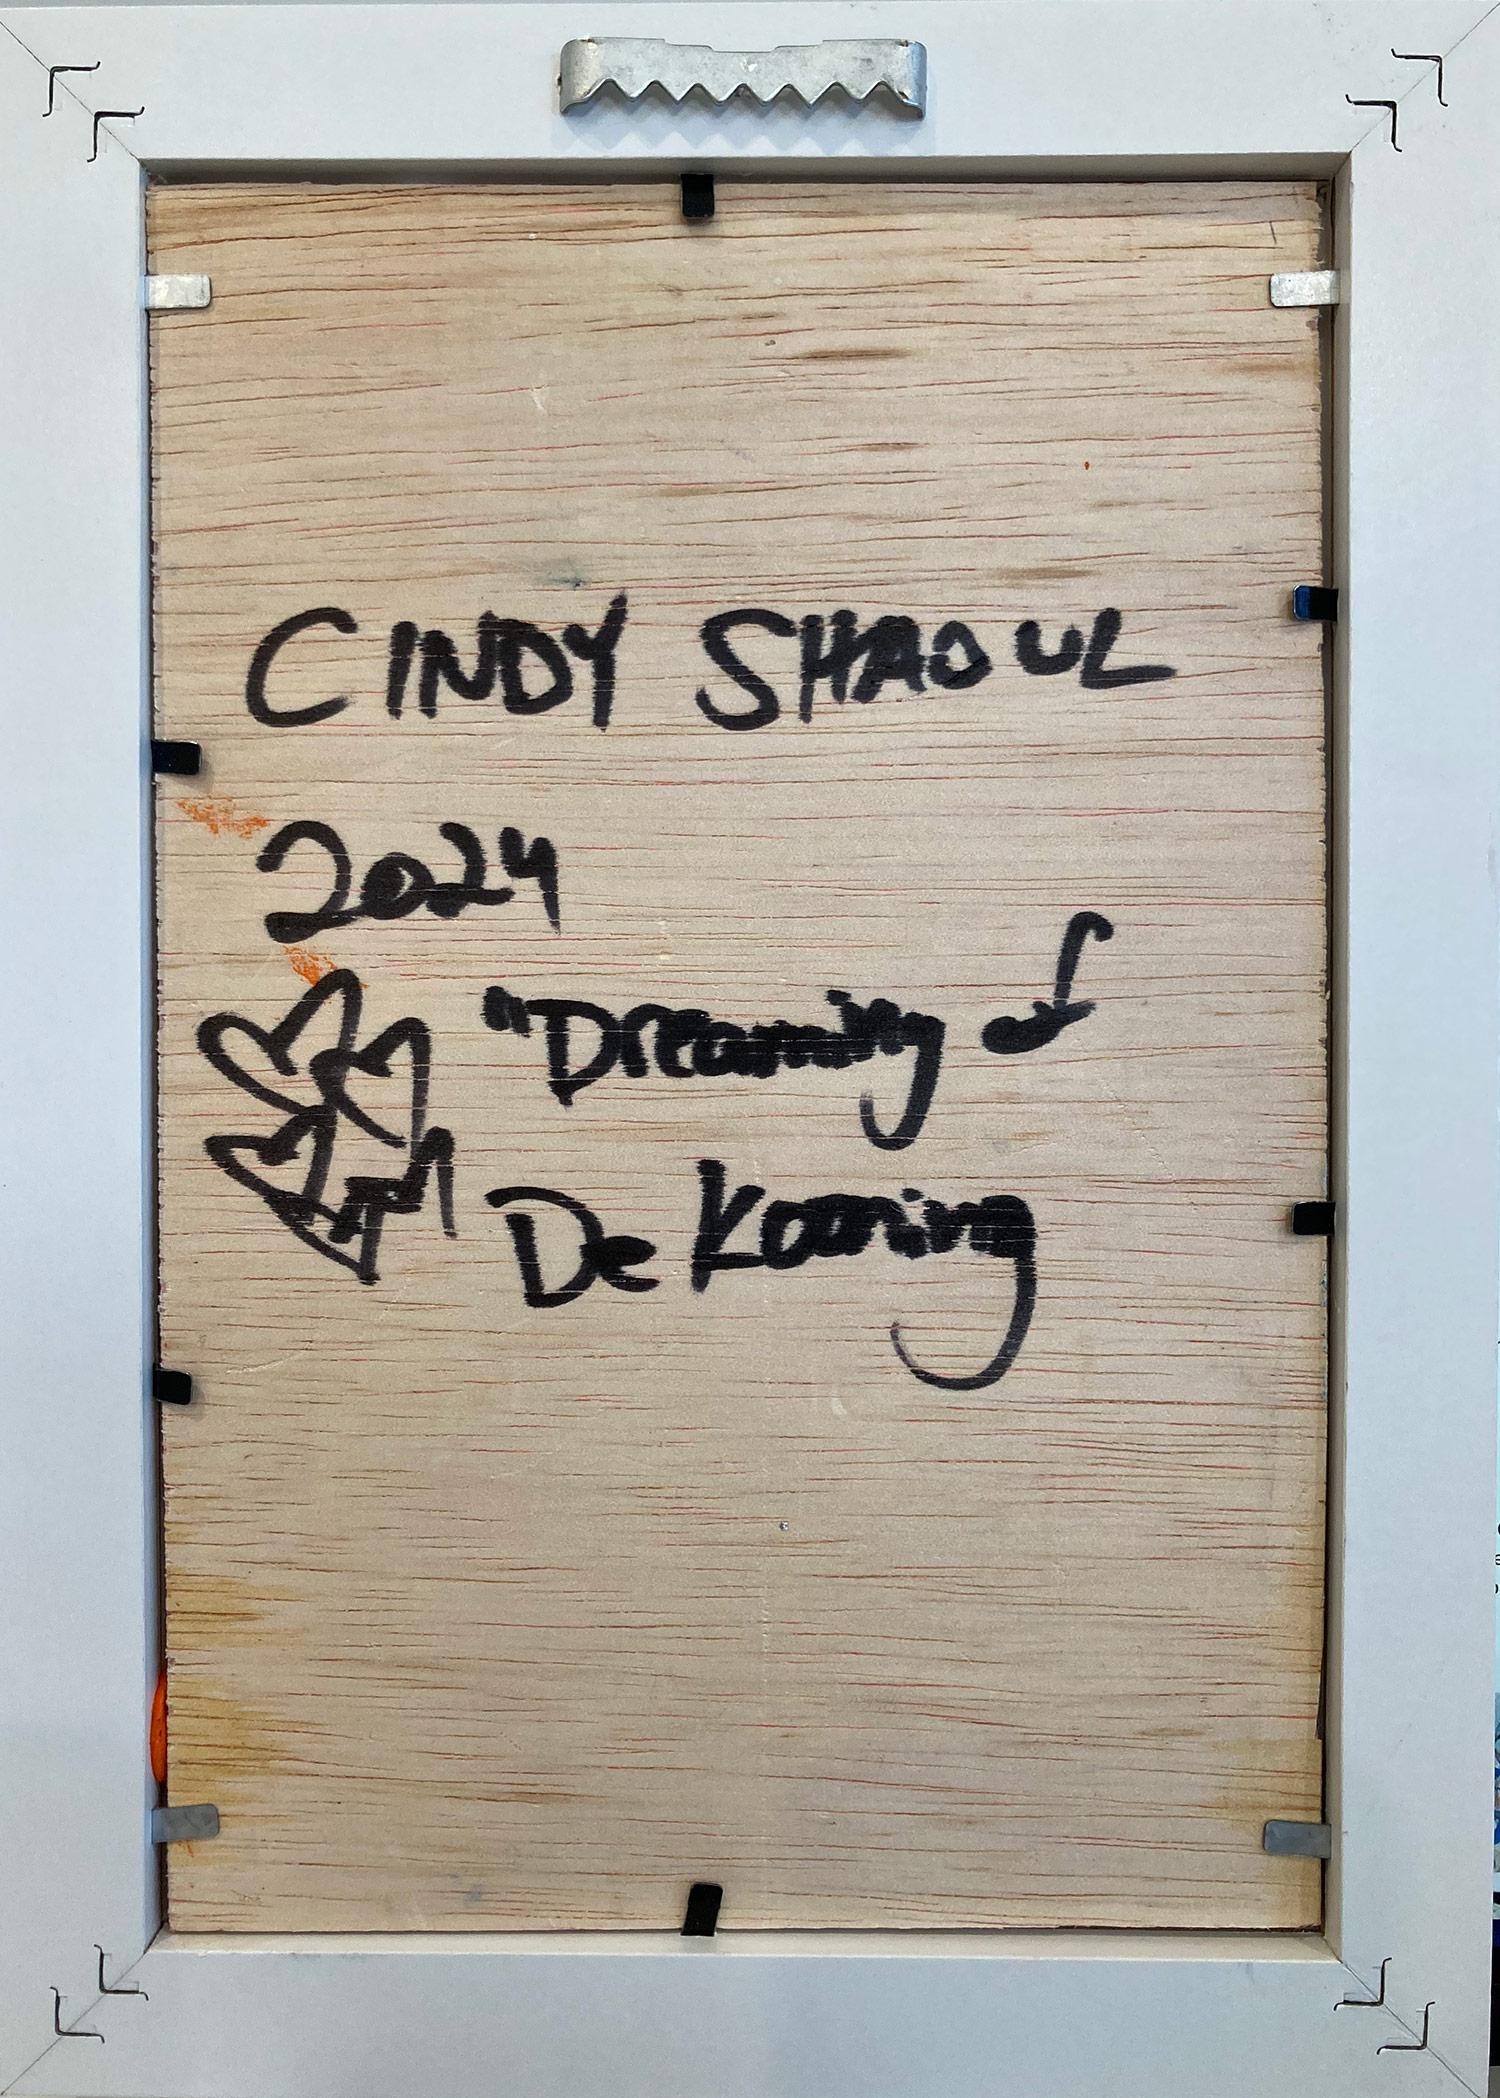 CINDY SHAOUL
2024
"Dreaming of
De Kooning